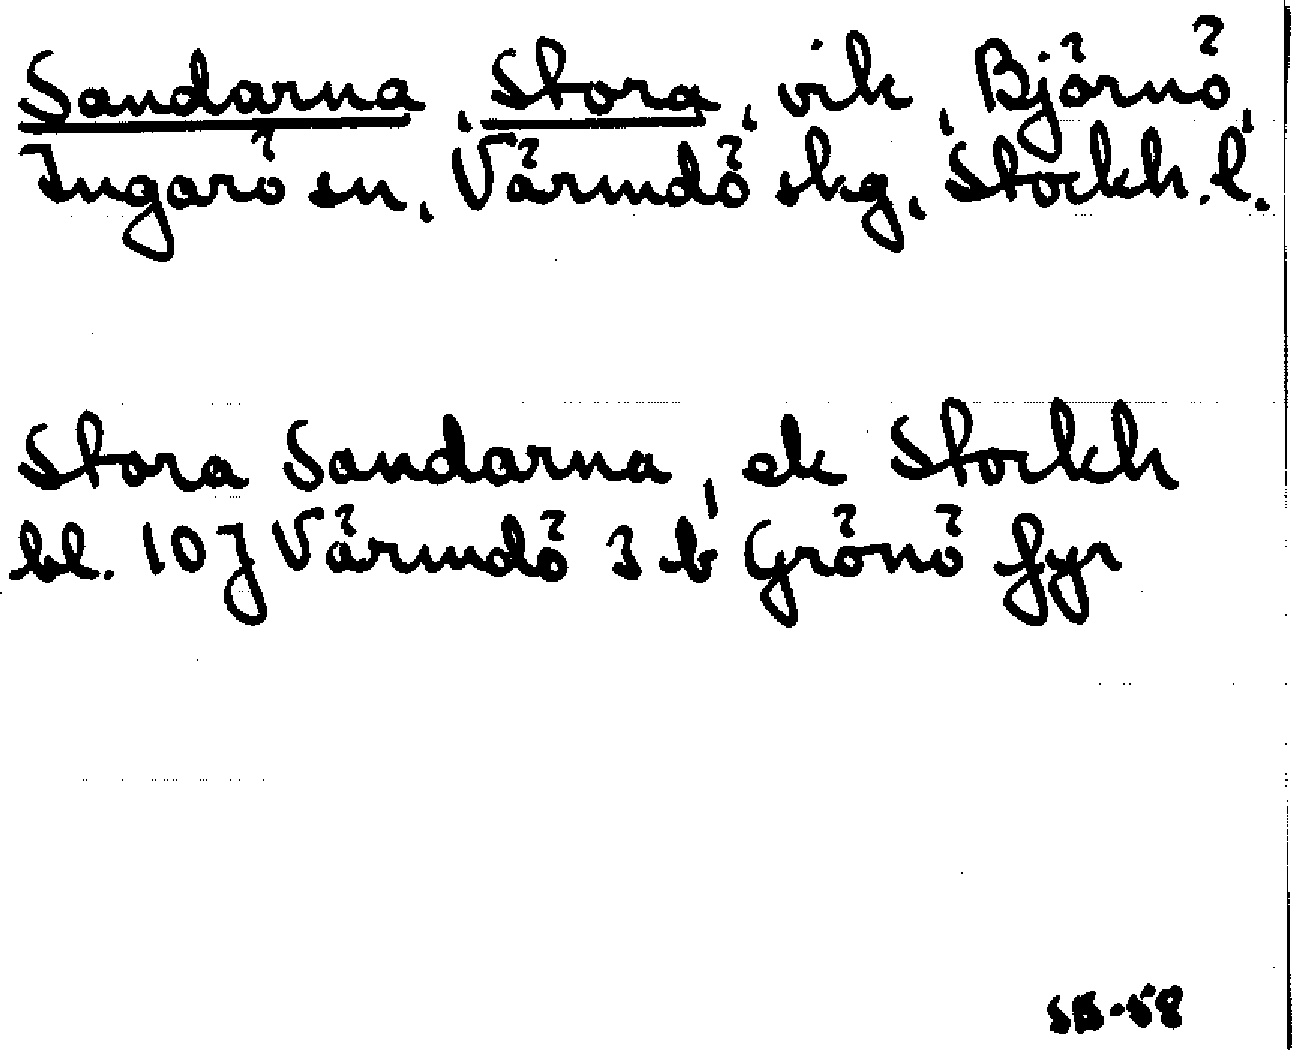 Sandarna, Stora, vik, Björnö,
Ingarö sn, Värmdö skg, Stockh. l.
Stora Sandarna, ek Stockh
bl. 10J Värmdö 3 b Grönö fyr
SB-58